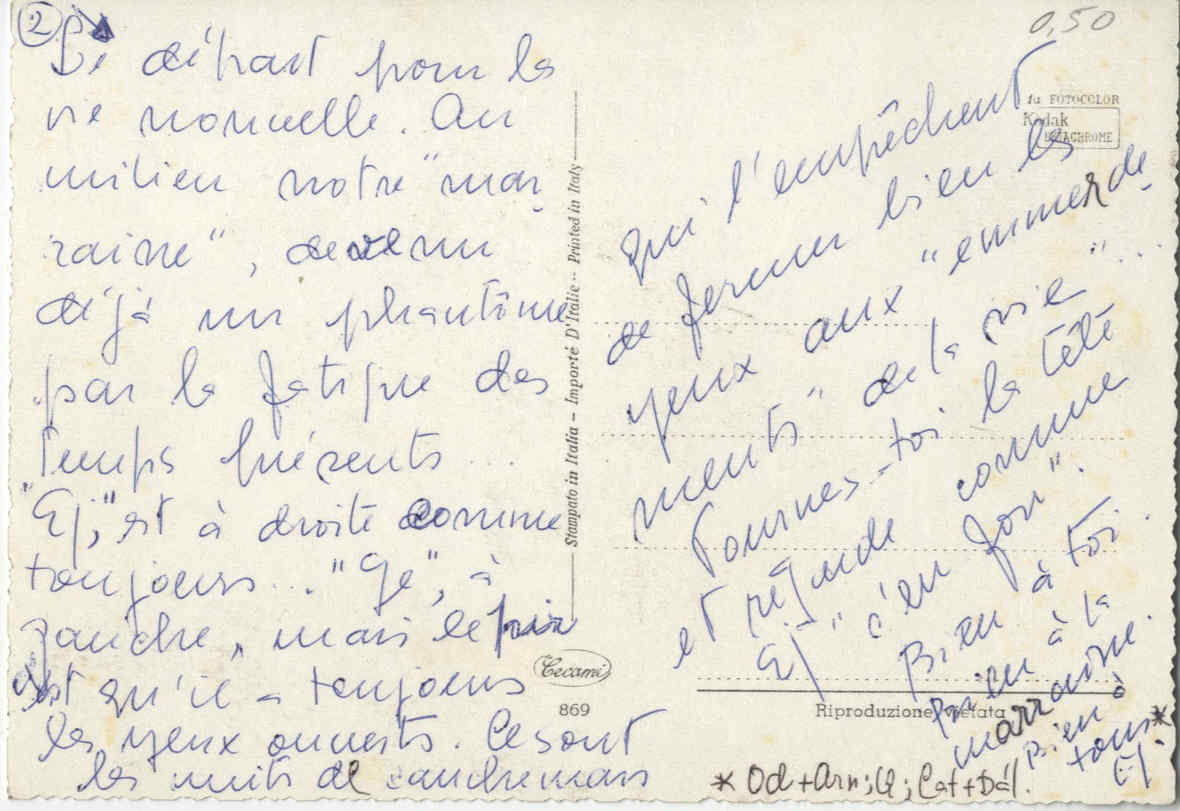 ②
Le départ pour la
vie nouvelle. Au
milieu notre "mar
raine", devenu
déjà un phantôme
par la fatigue des
temps présents...
"Ej," est à droite comme
toujours... "Gé", à
gauche, mais le pir
est qu'il a toujours
les yeux ouverts. Ce sont
les nuits de cauchemars
Stampato in Italia - Importé D'Italie - Printed in Italy
0,50
fa FOTOCOLOR
Kodak
EKTACHROME
qui l'empêchent
de fermer bien les
yeux aux "emmerde
ments" de la vie"...
Tournes-toi la tête
et régarde comme
Ej "c'en fou".
Bien à toi.
Bien à la
marraine.
Bien à
tous*
Ej.
Cecami
869
Riproduzione vietata
* Od+Arn; G; Cat+Dál.